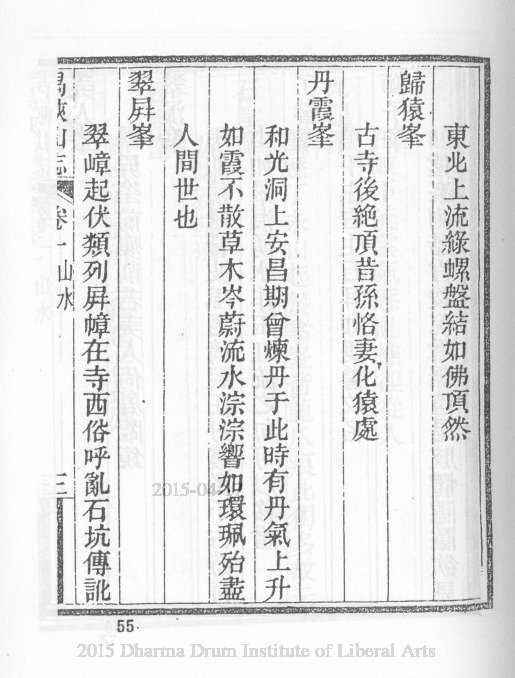 東北上流綠螺盤結如佛頂然
歸猿峯
古寺後絶頂昔孫恪妻化猿處
丹霞峯
和光洞上安昌期曾煉丹于此時有丹氣上升
如霞不散草木岑蔚流水淙淙響如環珮殆蓋
人間世也
翠屛峯
翠嶂起伏類列屛幛在寺西俗呼亂石坑傳訛
禺峽山志 卷一 山水 三
2015-04
55
2015 Dharma Drum Institute of Liberal Arts